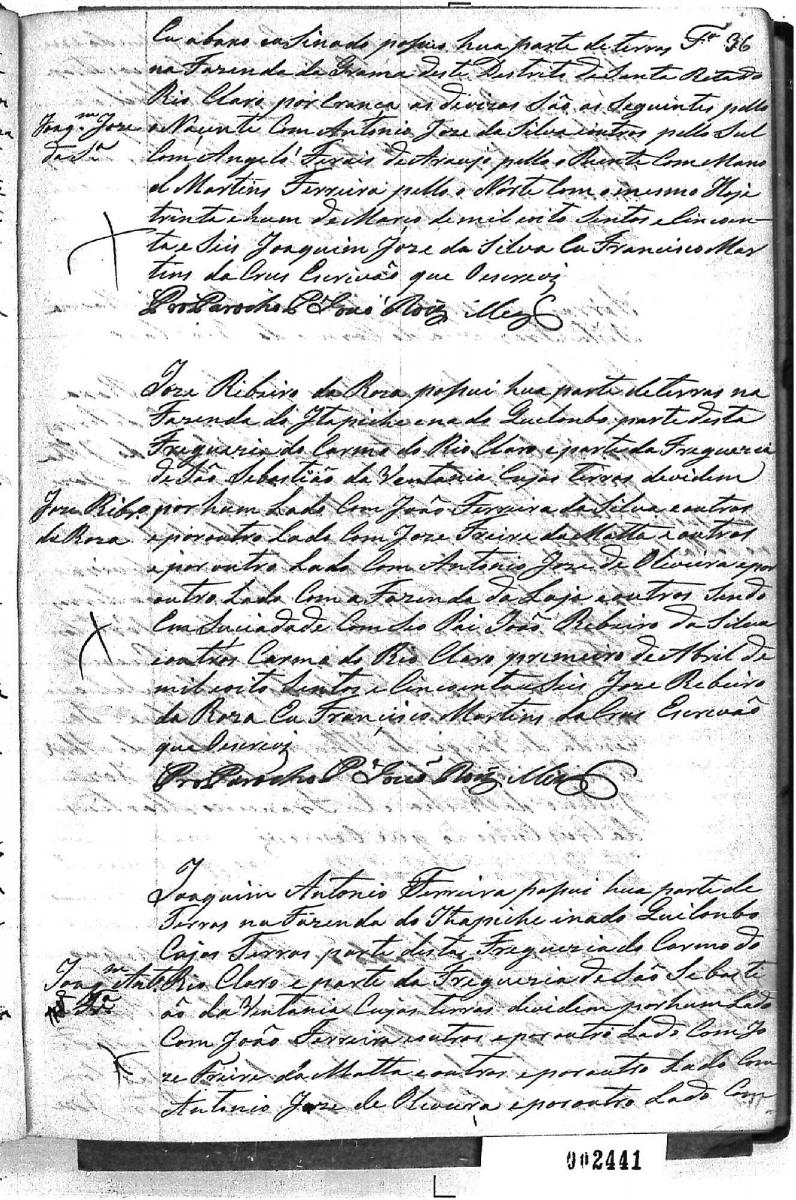 Eu abaxo asinado posuo hua parte de terras Fº 36
na Fazenda da Grama deste Destrito de Santa Rita do
Rio Claro por Erança as divizas São as Seguintes pello
Joaqm Joze
da Sª
o Nacente Com Antonio Joze da Silva e outros pello Sul
Com Angelo de Araujo pello o Poente Com Mano
el Martins Ferreira pello o Norte Com o mesmo Hoje
trinta e hum de Março de mil eoito Sentos e Cincoen-
ta e Seis Joaquim Joze da Silva Eu Francisco Mar
tins da Crus Escrivão que Oescrevi
Pro Parocho Pe João Roiz
Joze Ribeiro da Roza posui hua parte de terras na
Fazenda do Itapiche e na do Quilombo parte desta
Freguezia do Carmo do Rio Claro e parte da Freguezia
de São Sebastião da Ventania Cujas terras devidem
Joze Ribrº
da Roza
por hum Lado Com João Ferreira da Silva e outros
e por outro Lado Com Joze Freire da Matta e outros
e por outro Lado Com Antonio Joze de Oliveira e por
outro Lado Com a Fazenda da Laja e outros Sendo
Em Suciadade Com Seo Pai João Ribeiro da Silva
e outros Carmo do Rio Claro premeiro de Abril de
mil eoito Sentos e Cincoenta e Seis Joze Ribeiro
da Roza Eu Francisco Martins da Crus Escrivão
que Oescrevi
Pro Parocho Pe João Roiz
Joaquim Antonio Ferreira posui hua parte de
Terras na Fazenda do Ithapiche e na do Quilombo
Cujas Terras parte desta Freguezia do Carmo do
Joaqm Antº
Frª
Rio Claro e parte da Freguezia de São Sebasti
ão da Ventania Cujas terras devidem por hum Lado
Com João Ferreira e outros e por outro Lado Com Jo
ze Freire da Matta e outros e por outro Lado Com
Antonio Joze de Oliveira e por outro Lado Com
002441